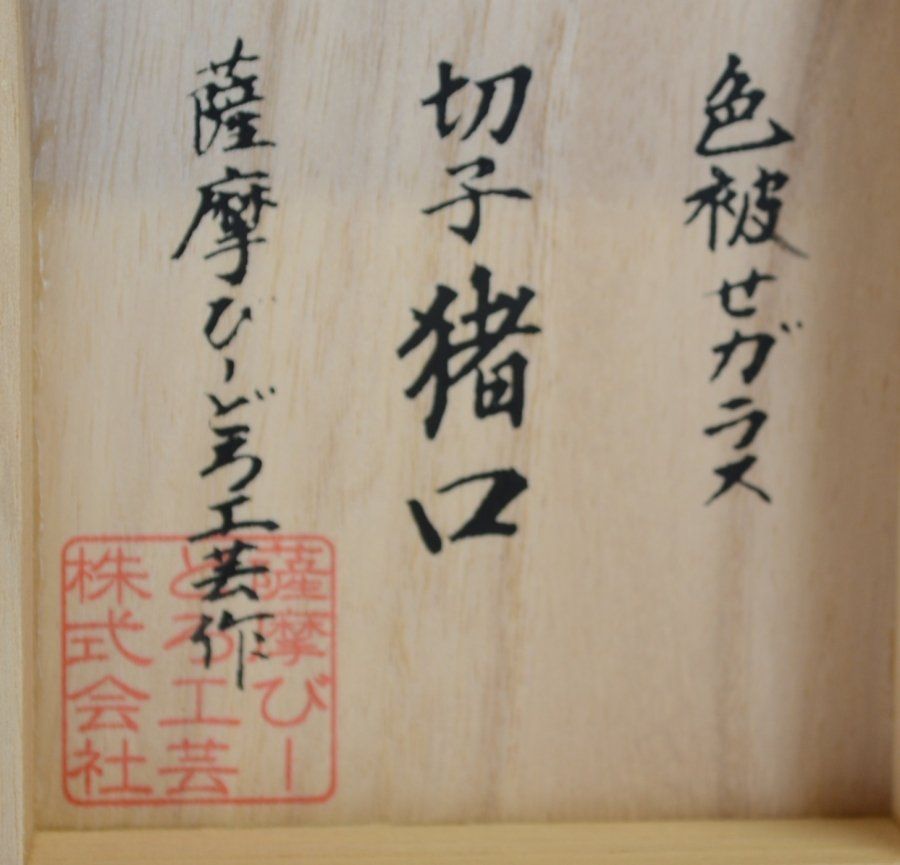 色被せガラス
切子猪口
薩摩びーどろ工芸作
薩摩びー
どろ工芸
株式会社